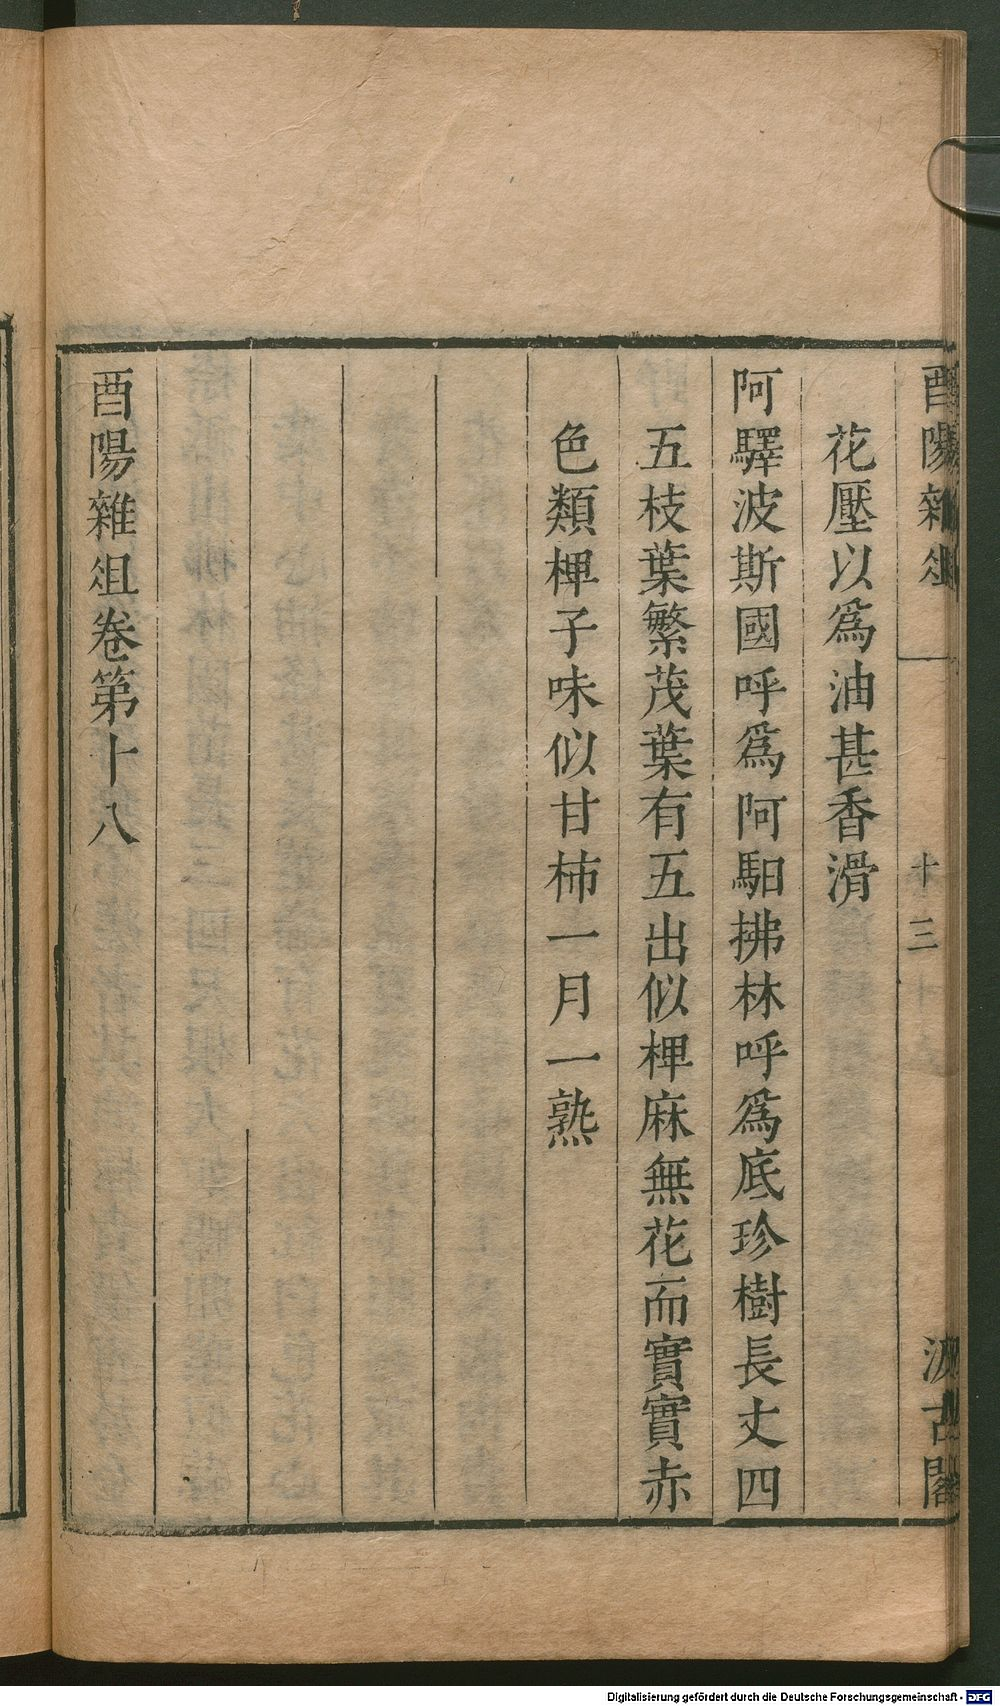 酉陽雜俎
十三
汲古閣
花壓以爲油甚香滑
阿驛波斯國呼爲阿馹拂林呼爲底珍樹長丈四
五枝葉繁茂葉有五出似椑麻無花而實實赤
色類椑子味似甘柿一月一熟
酉陽雜俎卷第十八
Digitalisierung gefördert durch die Deutsche Forschungsgemeinschaft - DFG